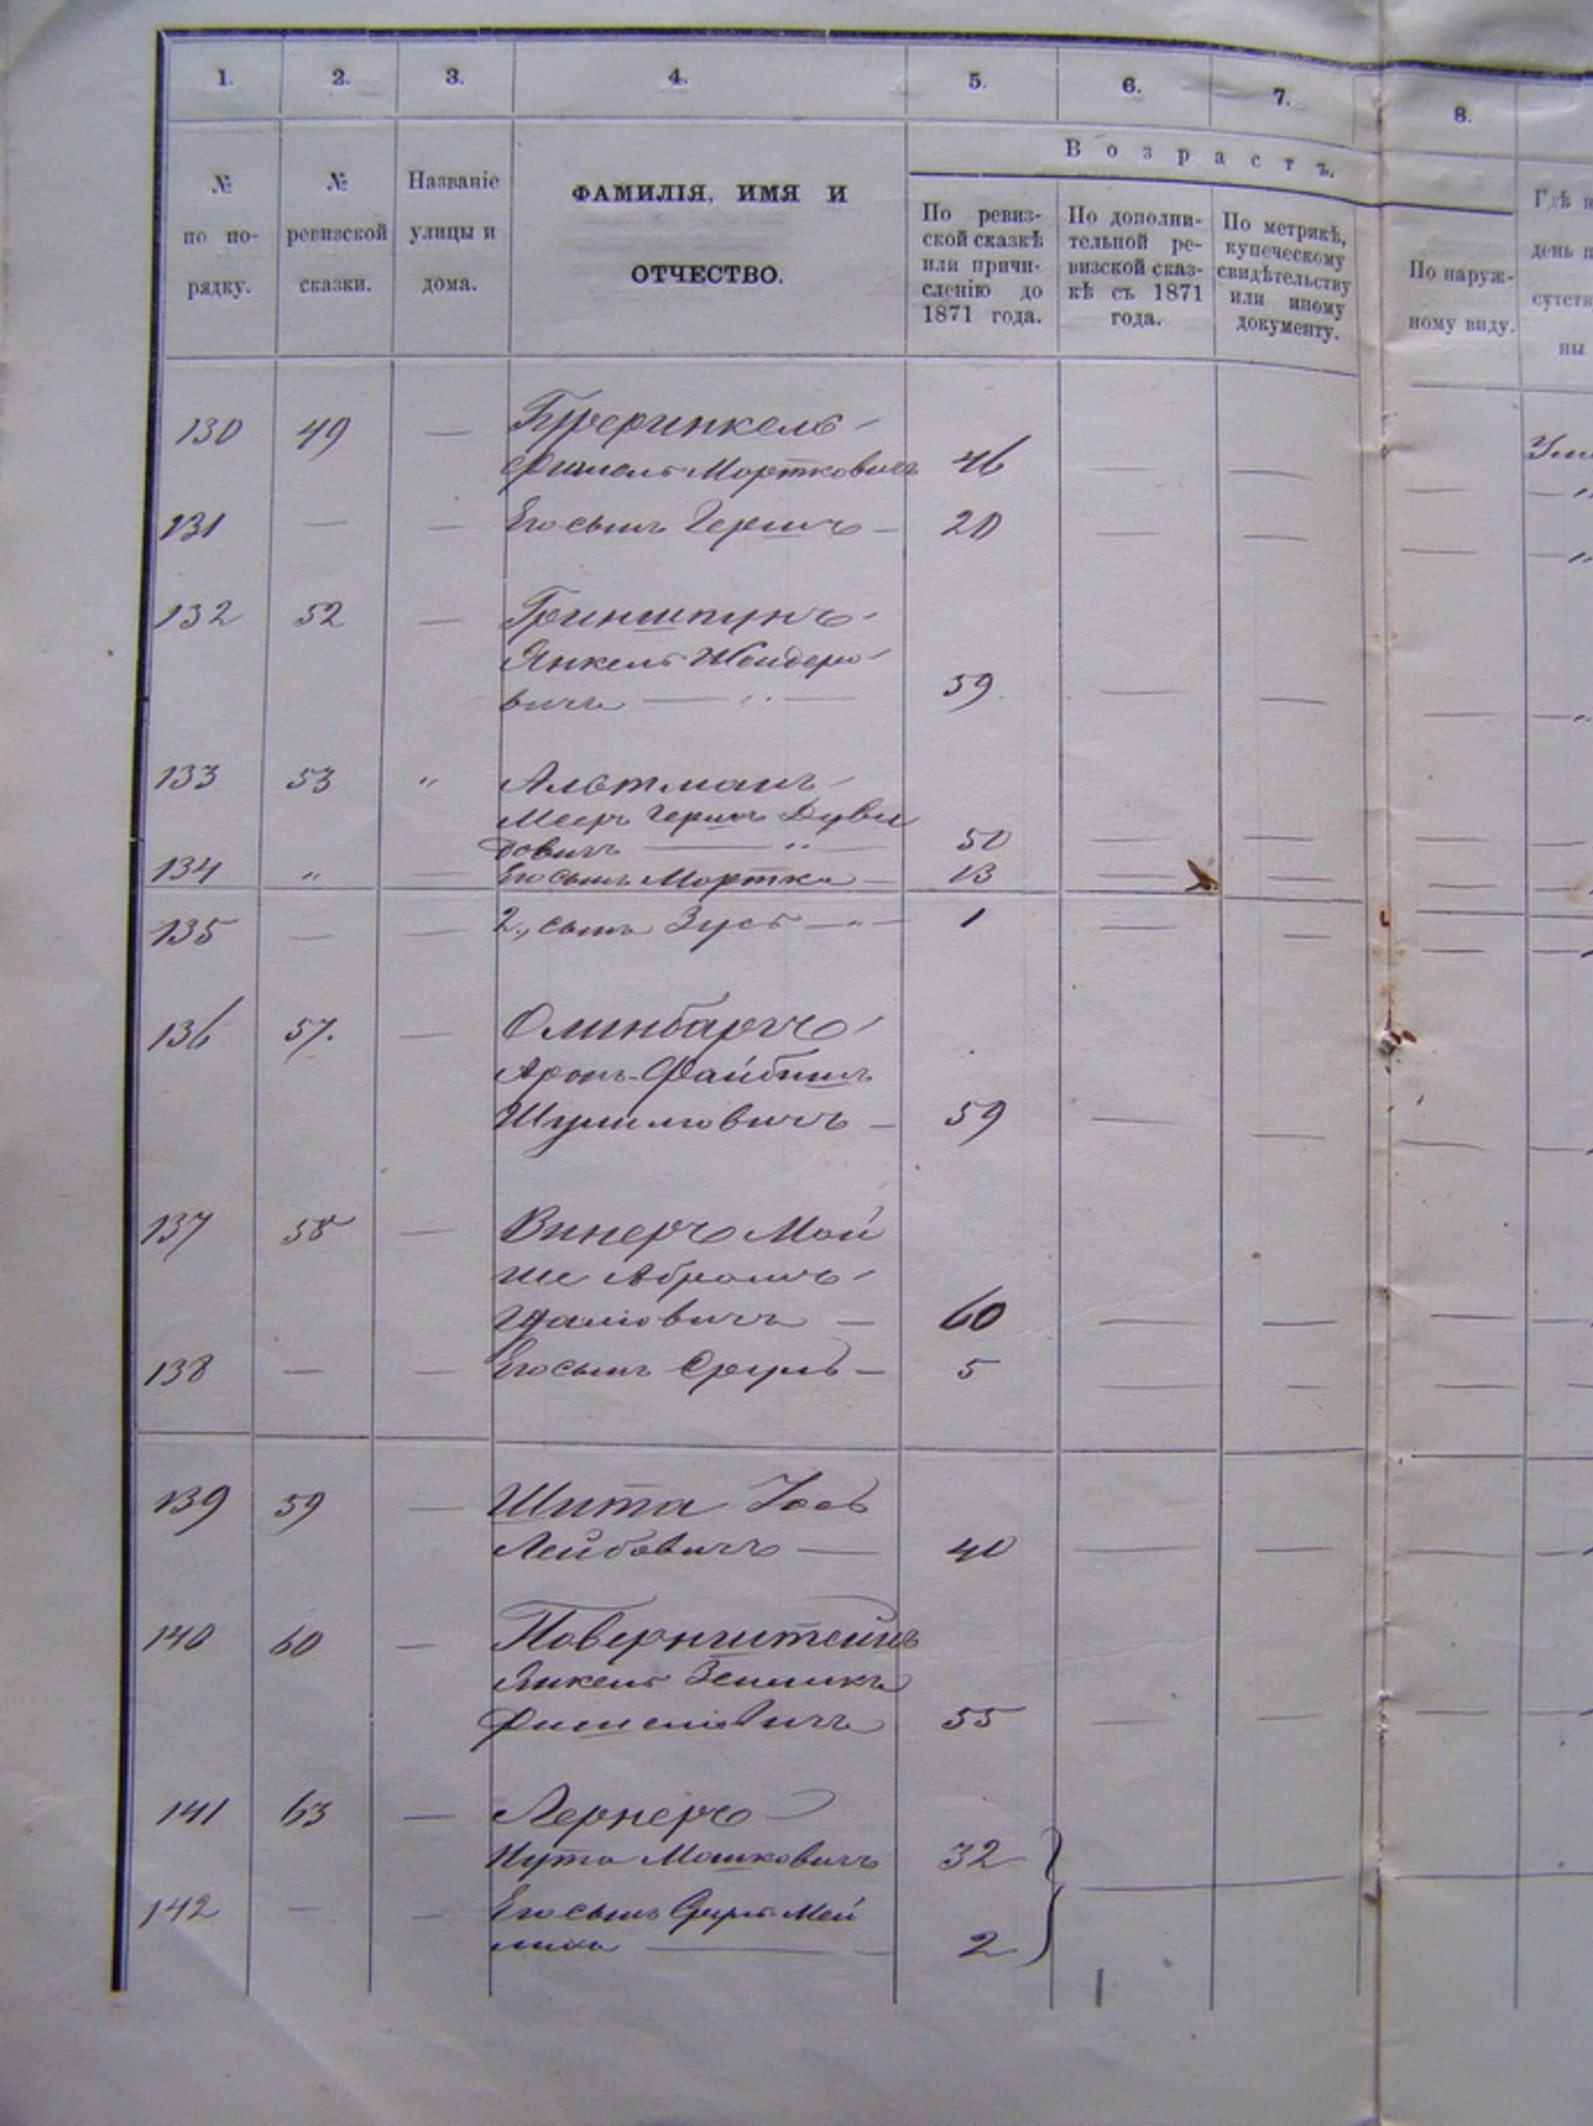 1. 2. 3. 4. 5. 6. 7. 8.
Возрастъ.
№ по порядку.
№ ревизской сказки.
Названіе улицы и дома.
ФАМИЛІЯ, ИМЯ И
ОТЧЕСТВО.
По ревиз-
ской сказкѣ
или причи-
сленію до
1871 года.
По дополни-
тельной ре-
визской сказ-
кѣ съ 1871
года.
По метрикѣ,
купеческому
свидѣтельству
или иному
документу.
По наруж-
ному виду.
Гдѣ
день
сутств
ны
130 49 —
Фишель Мортковичъ 46 — —
131 — — Его сынъ Гершъ — 20 — —
132 52 — Гриншпунъ
Янкель
вичъ — 59 — —
133 53 " Альтманъ
Мееръ Гершъ Дуви
довичъ — 50 — —
134 " — Его сынъ Мортка — 13 — —
135 — — 2., сынъ Зусь — 1 — —
136 57. — Олинбаргъ
Аронъ-Файбишъ
Шулимовичъ — 59 — —
137 58 — Винеръ Мой
ше Абрамъ
60 — —
138 — — Его сынъ Сруль — 5 — —
139 59 — Шита Іось
Лейбовичъ — 40 — —
140 60 — Повернштейнъ
Янкель Зелликъ
Фишелевичъ 55 — —
141 63 — Лернеръ
Нута Машковичъ 32
142 — — Его сынъ Сруль Мей
лихъ — 2